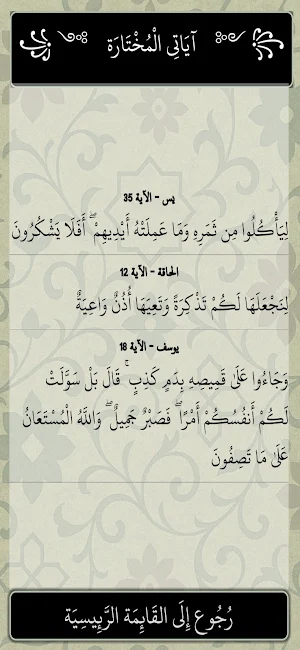 آيَاتِي الْمُخْتَارَة
يس - الآية 35
لِيَأْكُلُوا مِن ثَمَرِهِ وَمَا عَمِلَتْهُ أَيْدِيهِمْ ۖ أَفَلَا يَشْكُرُونَ
الحاقة - الآية 12
لِنَجْعَلَهَا لَكُمْ تَذْكِرَةً وَتَعِيَهَا أُذُنٌ وَاعِيَةٌ
يوسف - الآية 18
وَجَاءُوا عَلَىٰ قَمِيصِهِ بِدَمٍ كَذِبٍ ۚ قَالَ بَلْ سَوَّلَتْ
لَكُمْ أَنفُسُكُمْ أَمْرًا ۖ فَصَبْرٌ جَمِيلٌ ۖ وَاللَّهُ الْمُسْتَعَانُ
عَلَىٰ مَا تَصِفُونَ
رُجُوع إِلَى القَايِمَة الرَّيِيسِيَة